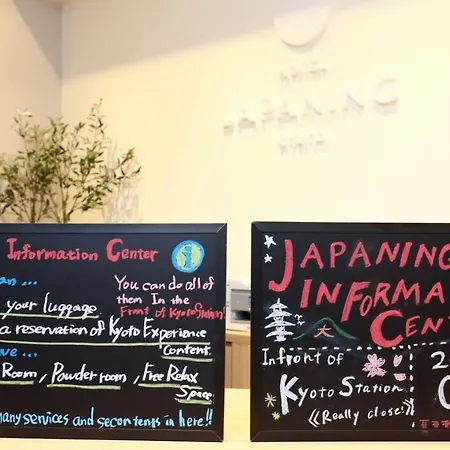 JAPANING
Information Center
an...
your luggage
a reservation of Kyoto Experience
Content
ve...
Room, Powder room, Free Relax
Space
many services and secontents in here!!
You can do all of
them In the
Front of Kyoto Station!
i
JAPANING
INFORMA
CENT
大
Infront of
Kyoto Station
《Really close!》
2